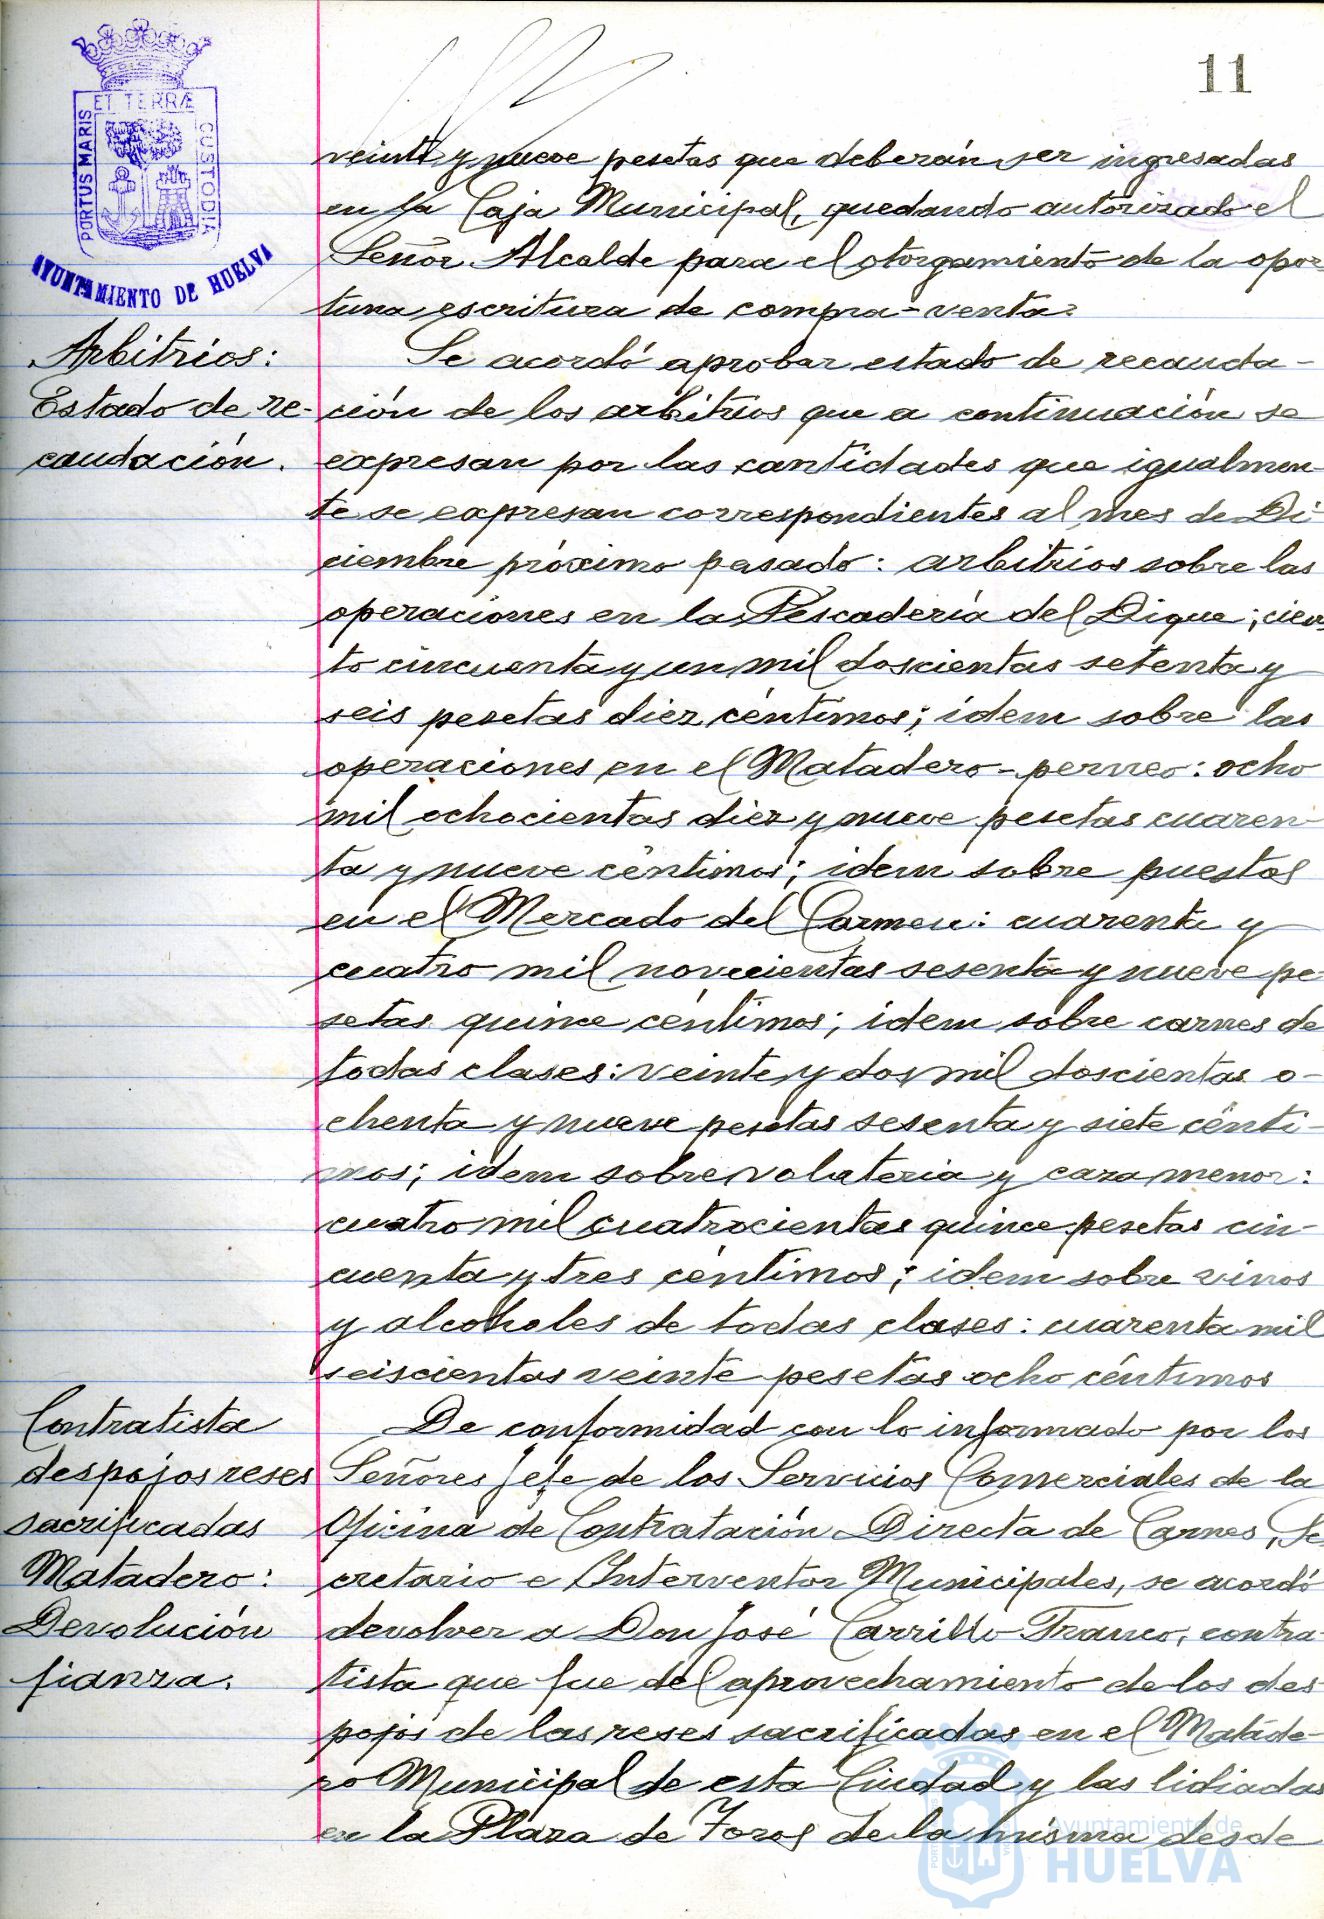 11
ET TERRÆ
PORTUS MARIS
CUSTODIA
AYUNTAMIENTO DE HUELVA
veinti y nueve pesetas que deberán ser ingresadas
en la Caja Municipal, quedando autorizado el
Señor Alcalde para el otorgamiento de la opor-
tuna escritura de compra-venta.
Arbitrios:
Estado de re-
caudación.
Se acordó aprobar estado de recauda-
ción de los arbitrios que a continuación se
expresan por las cantidades que igualmen-
te se expresan correspondientes al mes de Di-
ciembre próximo pasado: arbitrios sobre las
operaciones en la Pescadería del Dique; cien-
to cincuenta y un mil doscientas setenta y
seis pesetas diez céntimos; idem sobre las
operaciones en el Matadero-perneo: ocho
mil ochocientas diez y nueve pesetas cuaren-
ta y nueve céntimos; idem sobre puestos
en el Mercado del Carmen: cuarenta y
cuatro mil novecientas sesenta y nueve pe-
setas quince céntimos; idem sobre carnes de
todas clases: veinte y dos mil doscientas o-
chenta y nueve pesetas sesenta y siete cénti-
mos; idem sobre volateria y caza menor:
cuatro mil cuatrocientas quince pesetas cin-
cuenta y tres céntimos; idem sobre vinos
y alcoholes de todas clases: cuarenta mil
seiscientas veinte pesetas ocho céntimos
Contratista
despojos reses
sacrificadas
Matadero:
Devolución
fianza.
De conformidad con lo informado por los
Señores Jefe de los Servicios Comerciales de la
Oficina de Contratación Directa de Carnes, Se-
cretario e Interventor Municipales, se acordó
devolver a Don José Carrillo Franco, contra-
tista que fue del aprovechamiento de los des-
pojos de las reses sacrificadas en el Matade-
ro Municipal de esta Ciudad y las lidiadas
en la Plaza de Toros de la misma desde
Ayuntamiento de
HUELVA